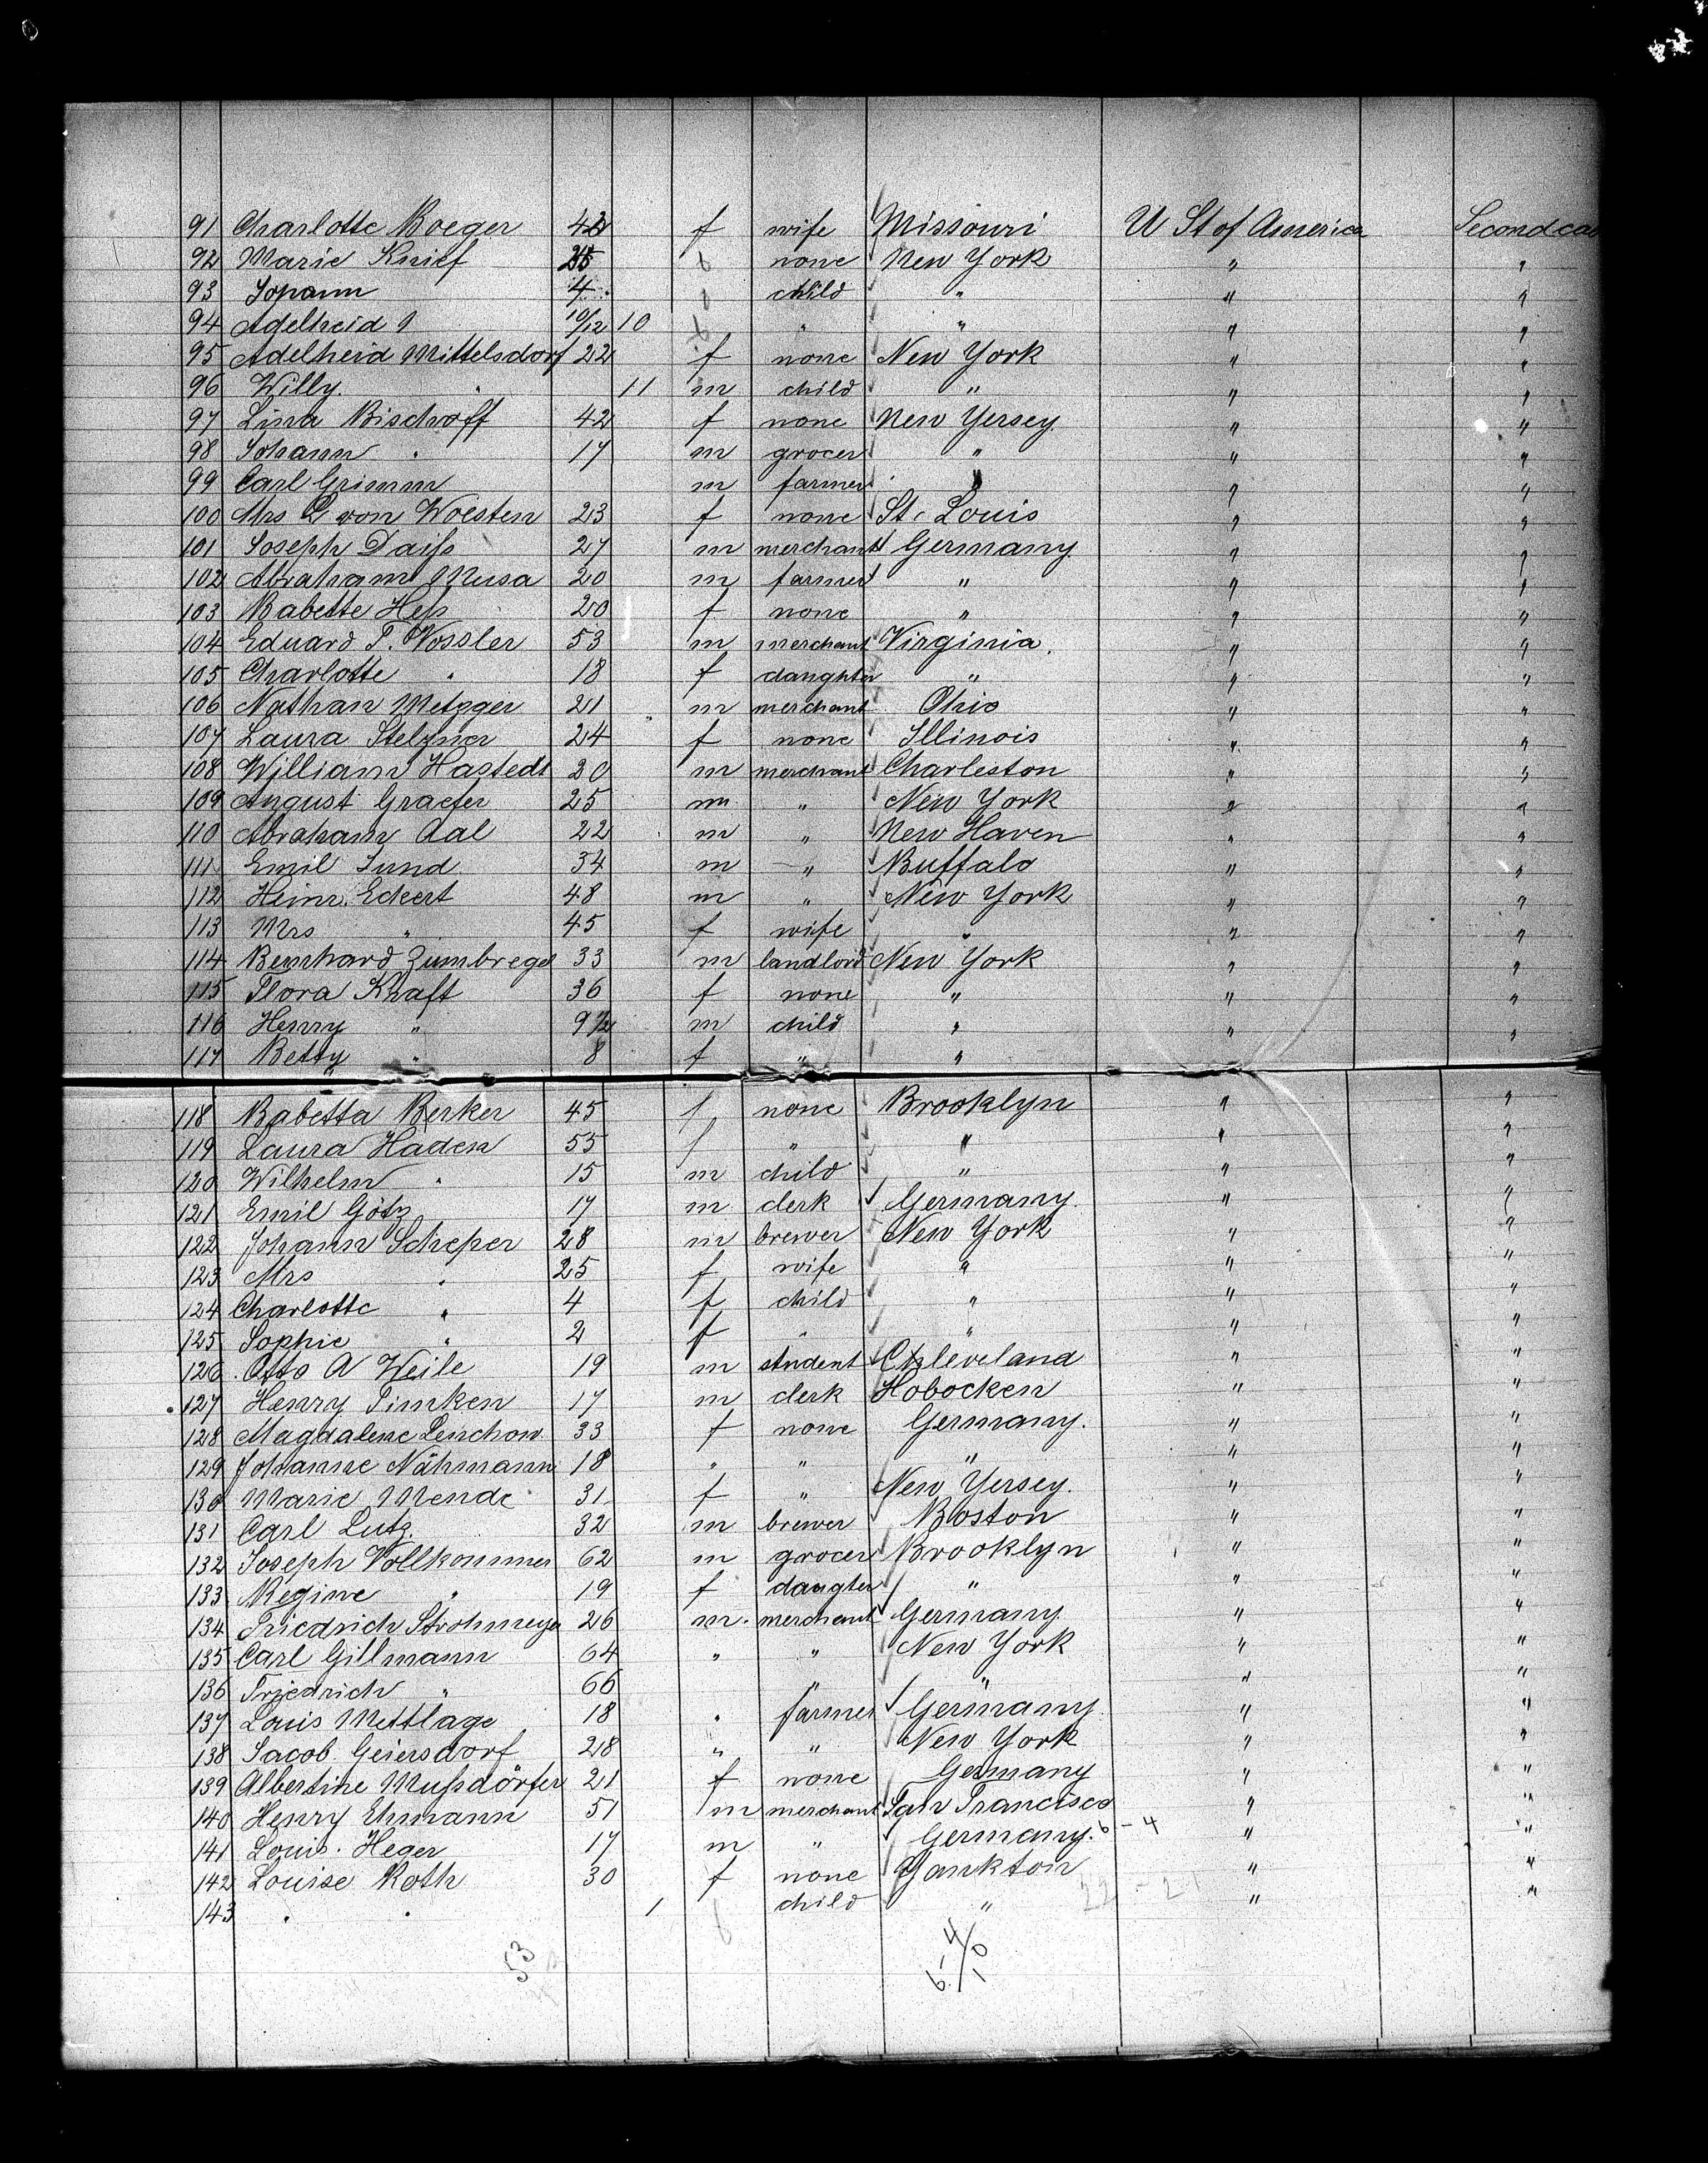 91 Charlotte Boeger 42 f wife Missouri U St of America Second cab
92 Marie Knief 25 none New York " "
93 Johann 4 child " " "
94 Adelheid " 10/12 10 " " " "
95 Adelheid Mittelsdorf 22 f none New York " "
96 Willy " 11 m child " " "
97 Lina Bischoff 42 f none New Yersey " "
98 Johann " 17 m grocer " " "
99 Carl Grimm m farmer " " "
100 Mrs L von Woesten 23 f none St. Louis " "
101 Joseph Daiss 27 m merchant Germany " "
102 Abraham Musa 20 m farmer " " "
103 Babette Hess 20 f none " " "
104 Eduard T. Vossler 53 m merchant Virginia. " "
105 Charlotte " 18 f daughter " " "
106 Nathan Metzger 21 m merchant Ohio " "
107 Laura Stelzner 24 f none Illinois " "
108 William Hastedt 20 m merchant Charleston " "
109 August Graefer 25 m " New York " "
110 Abraham Aal 22 m " New Haven " "
111 Emil Sund 34 m " Buffalo " "
112 Heinr. Eckert 48 m " New York " "
113 Mrs " 45 f wife " " "
114 Bernhard Zumbregel 33 m landlord New York " "
115 Flora Kraft 36 f none " " "
116 Henry " 9 1/2 m child " " "
117 Betty " 8 f " " " "
118 Babetta Berker 45 f none Brooklyn " "
119 Laura Haden 55 f " " " "
120 Wilhelm " 15 m child " " "
121 Emil Götz 17 m clerk Germany. " "
122 Johann Scheper 28 m brewer New York " "
123 Mrs " 25 f wife " " "
124 Charlotte " 4 f child " " "
125 Sophie " 2 f " " " "
126 Otto A Weile 19 m student Cleveland " "
127 Henry Timken 17 m clerk Hobocken " "
128 Magdalene Lenchow 33 f none Germany. " "
129 Johanne Nähmann 18 " " " " "
130 Marie Mende 31 f " New Yersey. " "
131 Carl Lutz. 32 m brewer Boston " "
132 Joseph Vollkommer 62 m grocer Brooklyn " "
133 Regine " 19 f daugter " " "
134 Friedrich Strohmeyer 26 m. merchant Germany " "
135 Carl Gillmann 64 " " New York " "
136 Friedrich " 66 " " " "
137 Louis Mettlage 18 " farmer Germany " "
138 Jacob Geiersdorf 28 " " New York " "
139 Albertine Mussdörfer 21 f none Germany " "
140 Henry Ehmann 51 m merchant San Francisco " "
141 Louis Heger 17 m " Germany. 6-4 " "
142 Louise Roth 30 f none Yankton " "
143 " " 1 child " 22-21 " "
53 6-4/10